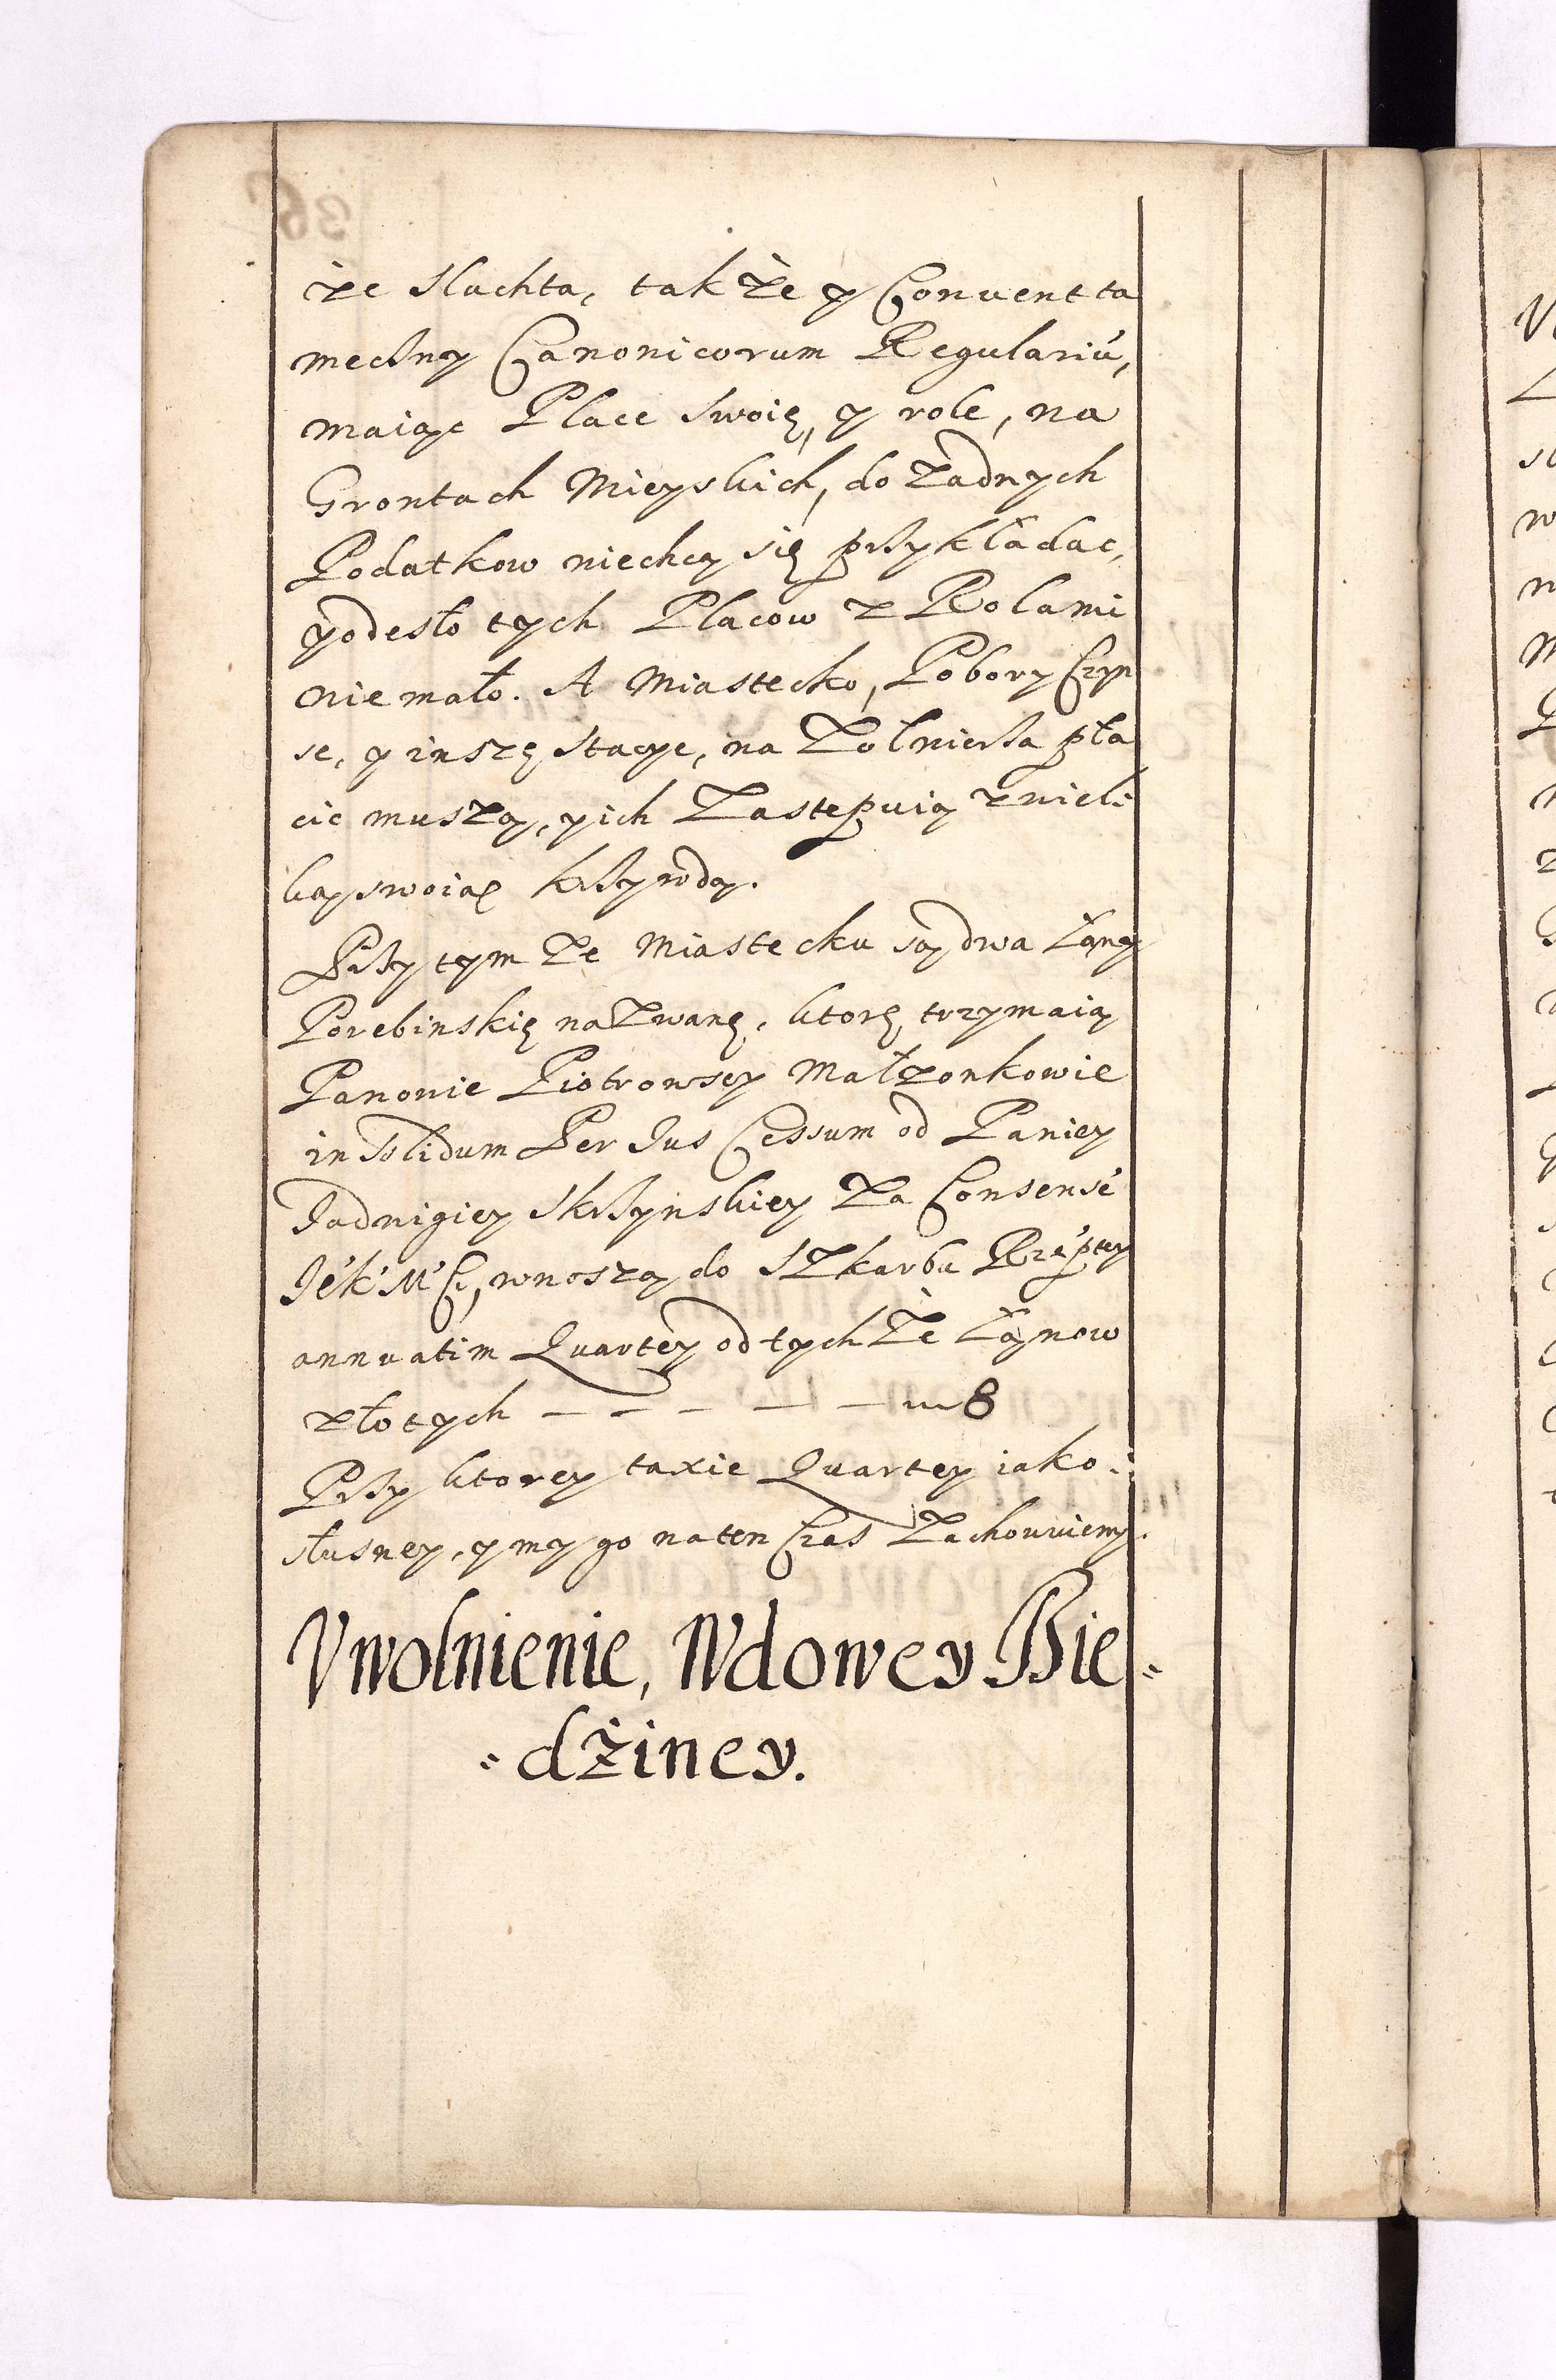 że Slachta, także y Conuent ta
mecżny Canonicorum Regulariu,
maiąc Place swoię, y role, na
Grontach Mieyskich, do żadnych
Podatkow niechcą się przykładac,
yodesło tych Placow z Rolami
nie mało. A Miastecko, Pobory Czyn
se, y inszę stacye, na Zołnierza pła
cic muszą, y ich Zastępuią zwieli
ką swoiąę krzywdą.
Przy tym że Miastecku są dwa Łany
Porebinskię nazwanę, ktorę trzymaią
Panowie Piotrowscy Małzonkowie
in Solidum Per Ius Cessum od Paniey
Jadwigiey Skrzynskiey za Consense
Je° K° M° Ci, wnoszą do SZkarbu Rzeptey
annuatim Quartey od tych że Łanow
złotych — — — — — 8
Przy ktorey taxie Quartey iako
słusney, y my go naten Czas Zachowuiemy.
Vwolnienie, Wdowey Bie=
=dżiney.